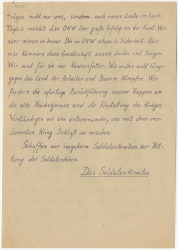 trügen nicht nur uns, sondern auch unsere Leute zu Haus.
Täglich meldet das OKW über große Erfolge an der Front. Wir
aber wissen es besser. Die im OKW sitzen in Sicherheit. Was
kümmern diese Gesellschaft unsere Leiden und Sorgen.
Wir sind für sie nur Kanonenfutter. Wir wollen nicht länger
gegen das Land der Arbeiter und Bauern kämpfen. Wir
fordern die sofortige Zurückführung unserer Truppen an
die alte Reichsgrenze und die Einstellung des Krieges.
Verständigen wir uns untereinander, um mit dem
Krieg Schluß zu machen.
Schaffen wir insgeheim Soldatenkomitees zur Ret-
tung der Soldatenleben.
Das Soldatenkomitee